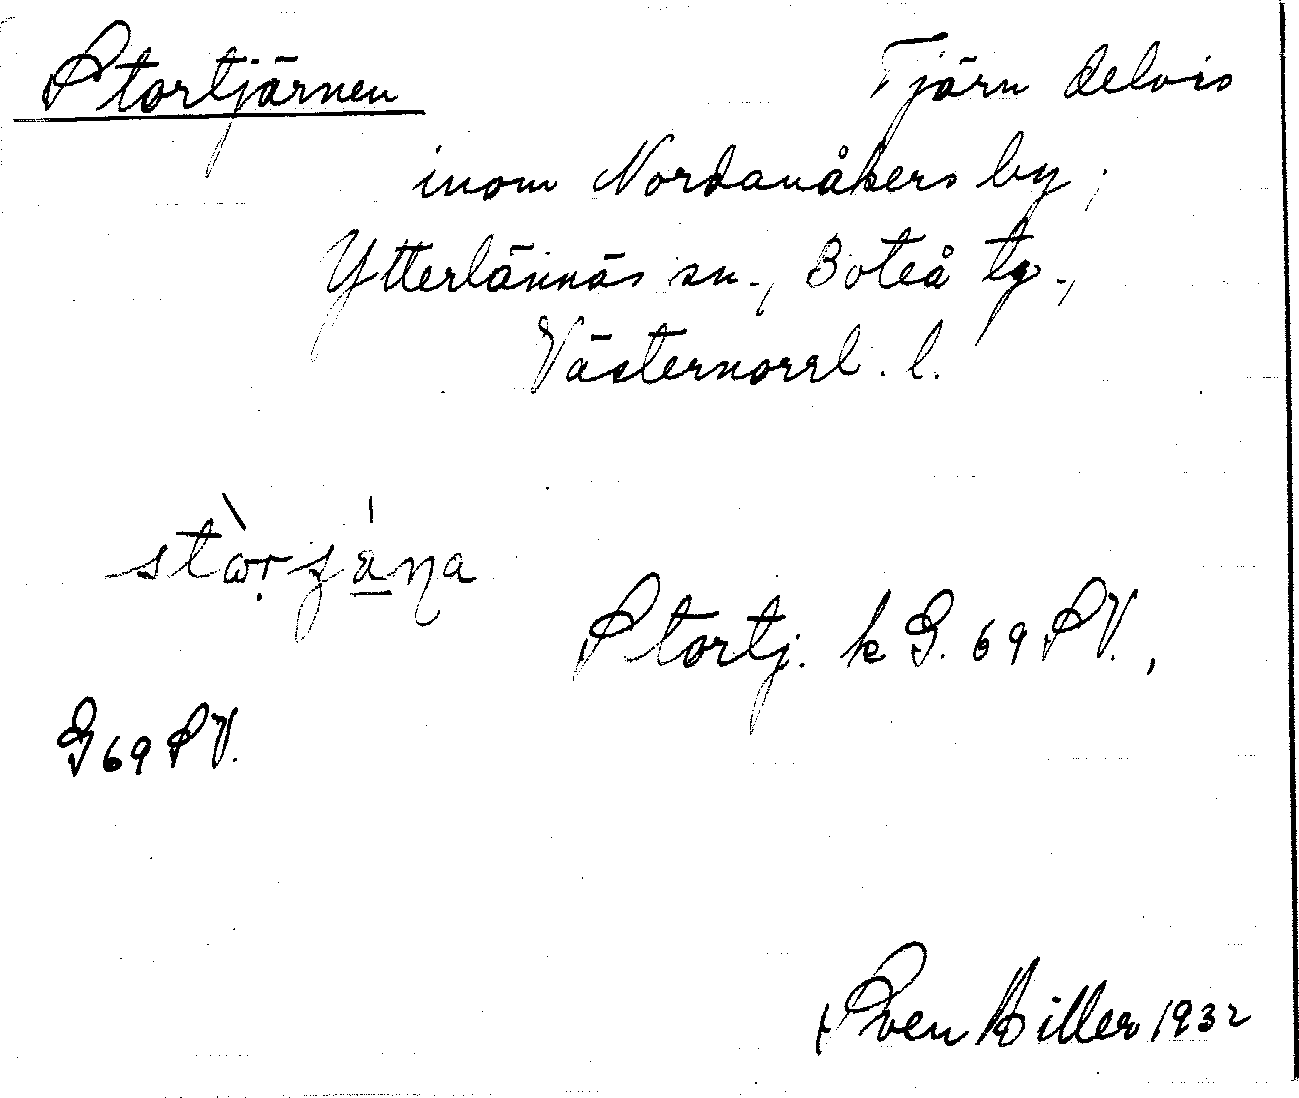 Stortjärnen Tjärn delvis
inom Nordanåkers by,
Ytterlännäs sn., Boteå tg.,
Västernorrl. l.
Stortj. k G. 69 SV.,
G 69 SV.
Sven Hiller 1932